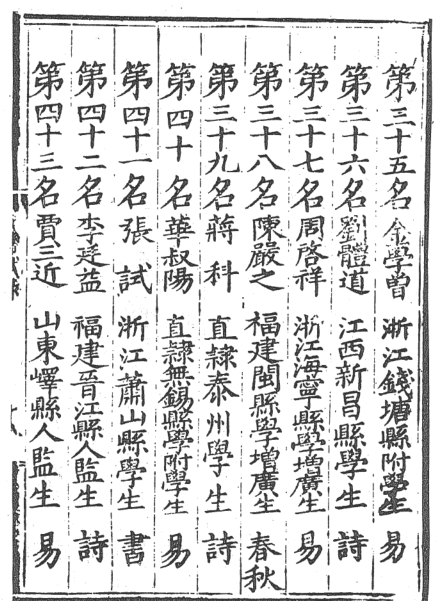 第三十五名金學曾 浙江錢塘縣附學生 易
第三十六名劉體道 江西新昌縣學生 詩
第三十七名周啓祥 浙江海寧縣學增廣生 易
第三十八名陳嚴之 福建閩縣學增廣生 春秋
第三十九名蔣科 直隸泰州學生 詩
第四十名華叔陽 直隸無錫縣學附學生 易
第四十一名張試 浙江蕭山縣學生 書
第四十二名李廷益 福建晉江縣人監生 詩
第四十三名賈三近 山東嶧縣人監生 易